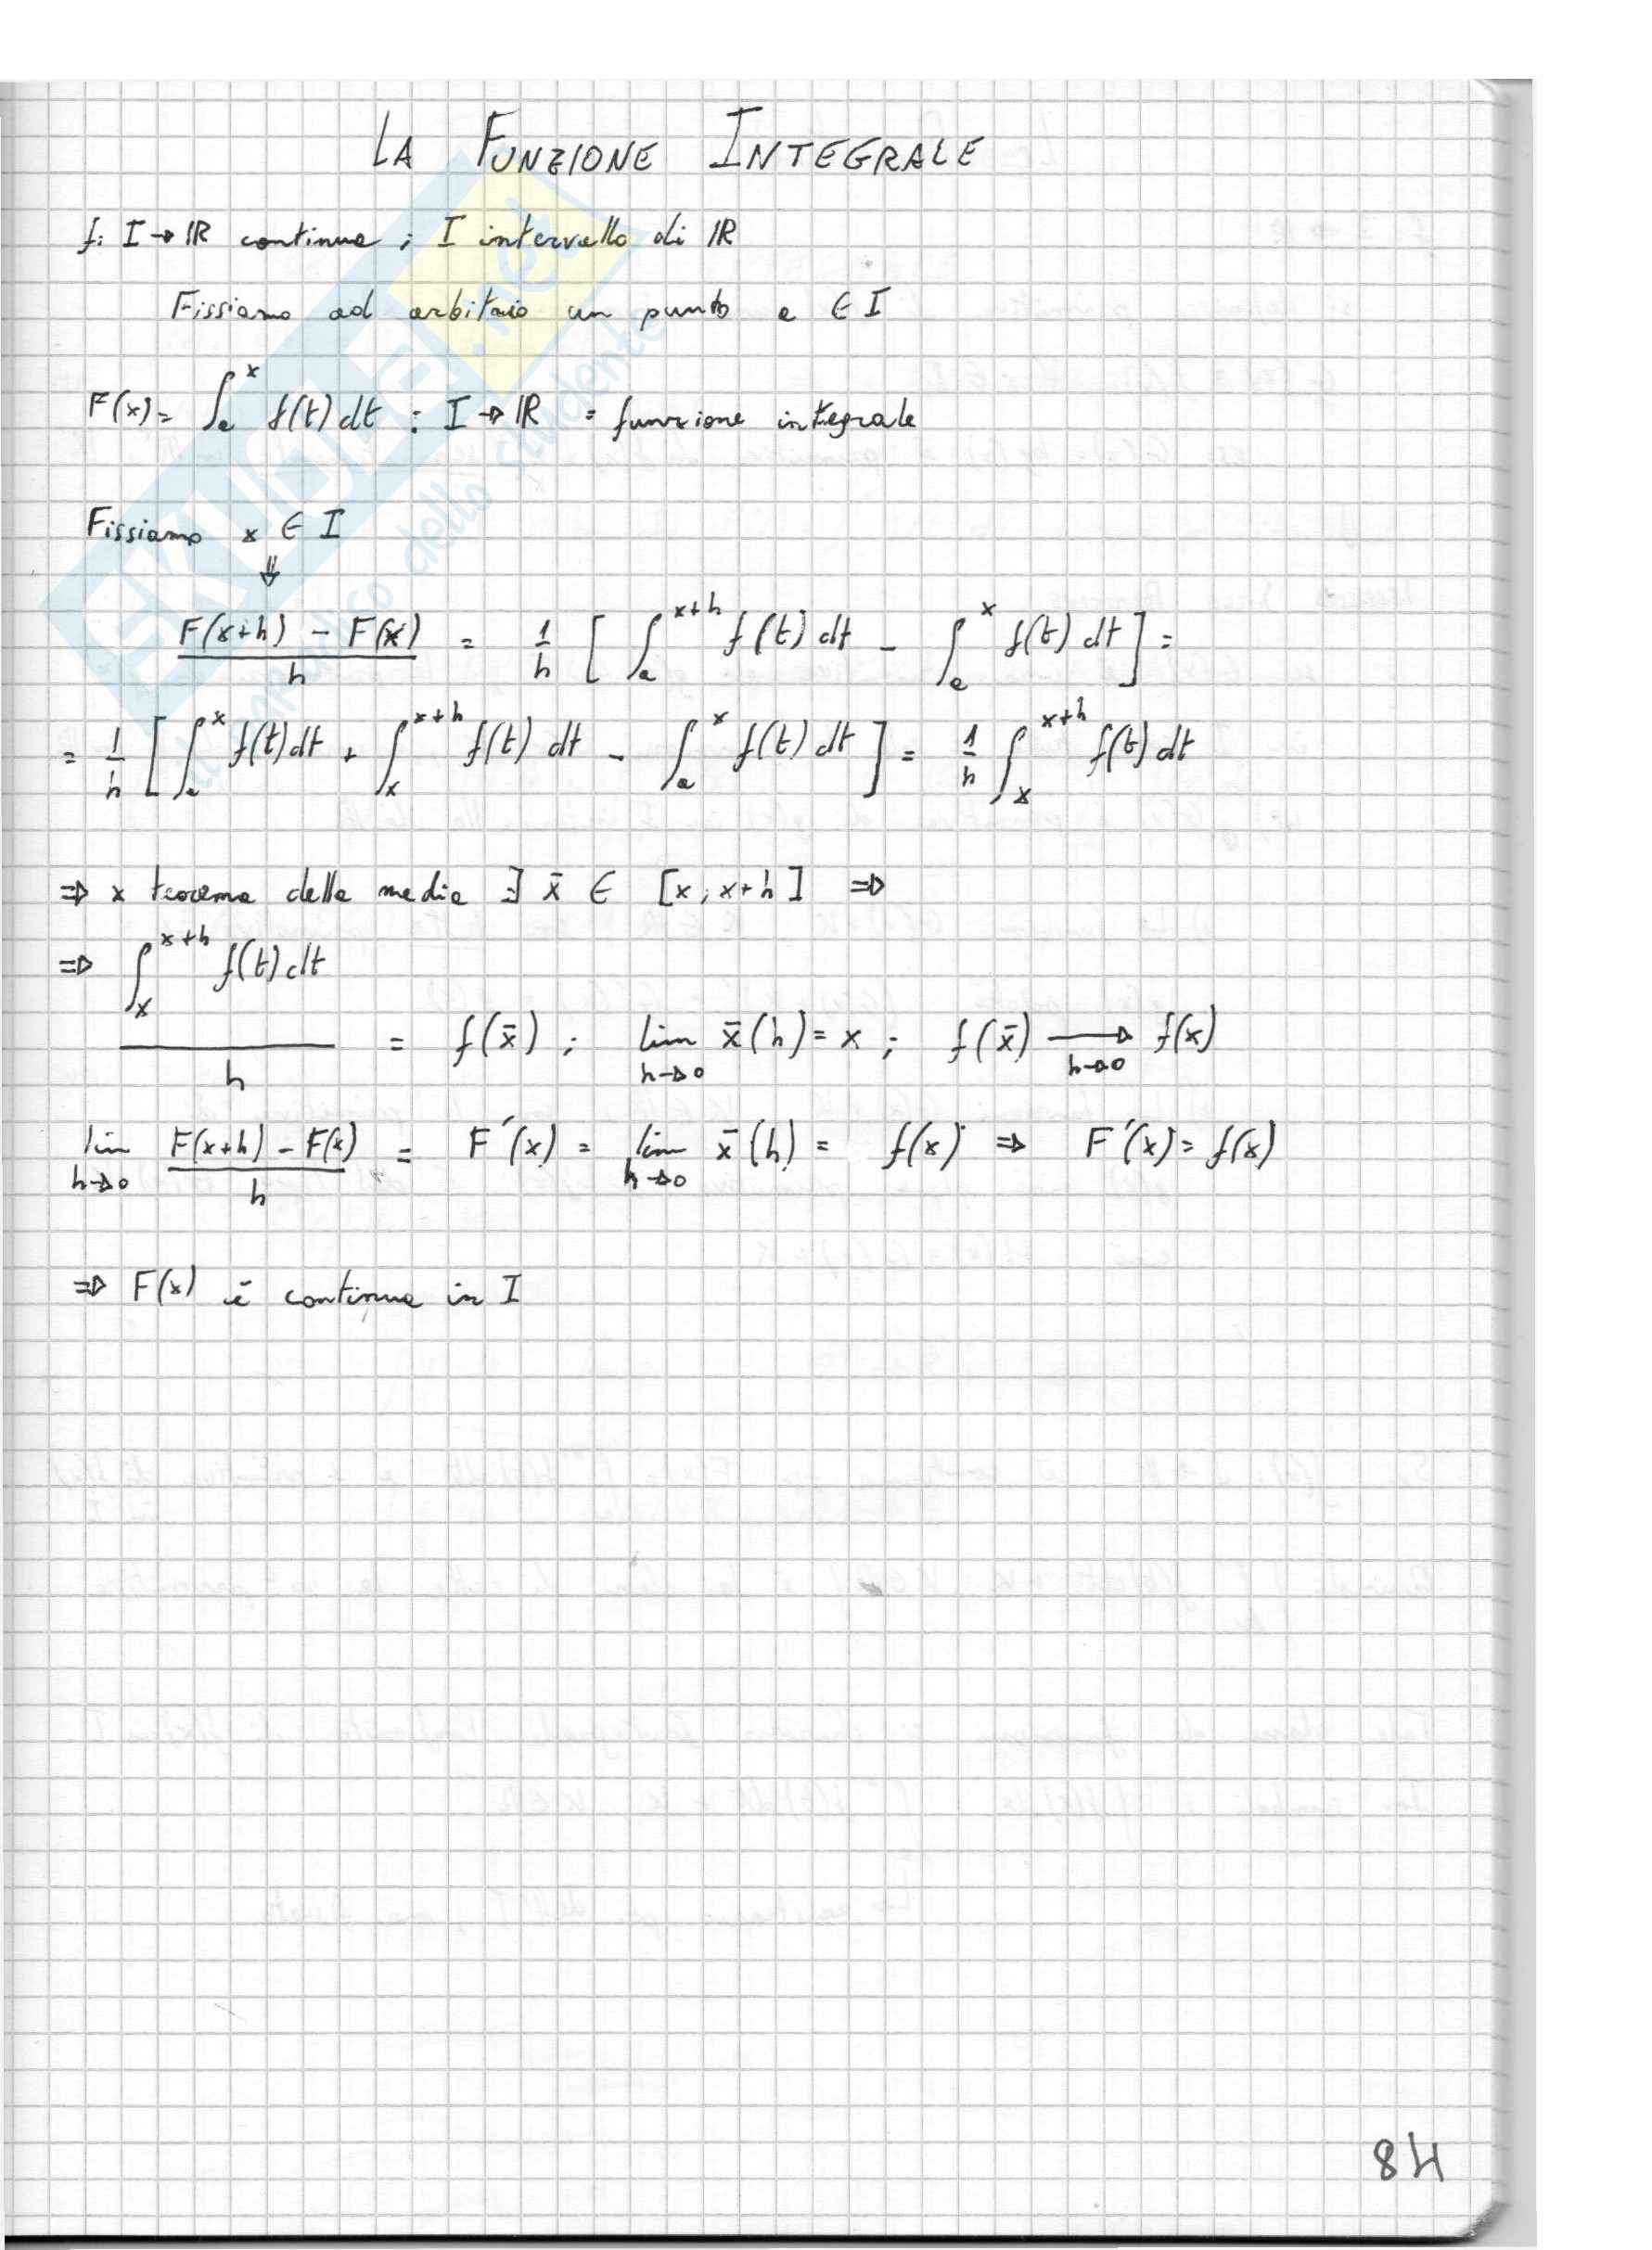 LA FUNZIONE INTEGRALE
f: I → ℝ continua ; I intervallo di ℝ
Fissiamo ad arbitraio un punto a ∈ I
F(x) = ∫ₐˣ f(t) dt : I → ℝ = funzione integrale
Fissiamo x ∈ I
⇓
(F(x+h) − F(x))/h = 1/h [ ∫ₐˣ⁺ʰ f(t) dt − ∫ₐˣ f(t) dt ] =
= 1/h [ ∫ₐˣ f(t) dt + ∫ₓˣ⁺ʰ f(t) dt − ∫ₐˣ f(t) dt ] = 1/h ∫ₓˣ⁺ʰ f(t) dt
⇒ x teorema della media ∃ x̄ ∈ [x ; x+h] ⇒
⇒ (∫ₓˣ⁺ʰ f(t) dt)/h = f(x̄) ; lim h→0 x̄(h) = x ; f(x̄) → h→0 f(x)
lim h→0 (F(x+h) − F(x))/h = F'(x) = lim h→0 x̄(h) = f(x) ⇒ F'(x) = f(x)
⇒ F(x) è continua in I
84
SKUOLA.net
dello studente